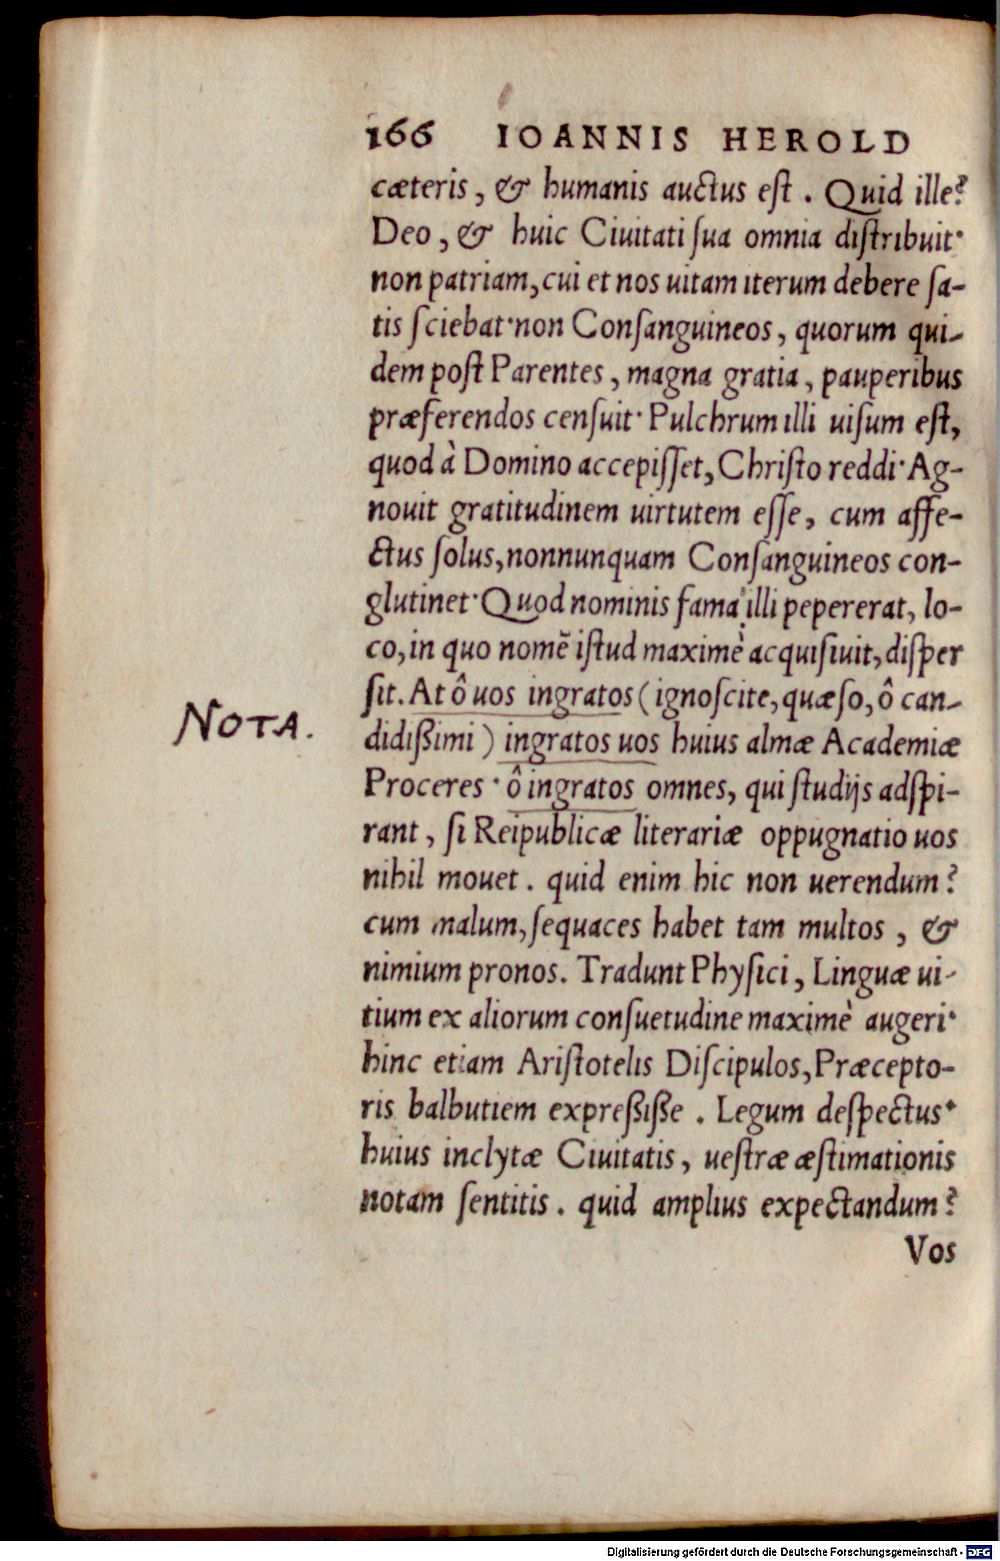 166 IOANNIS HEROLD
cæteris, & humanis auctus eſt. Quid ille?
Deo, & huic Ciuitati ſua omnia diſtribuit·
non patriam, cui et nos uitam iterum debere ſa-
tis ſciebat·non Conſanguineos, quorum qui-
dem poſt Parentes, magna gratia, pauperibus
præferendos cenſuit· Pulchrum illi uiſum eſt,
quod à Domino accepiſſet, Chriſto reddi· Ag-
nouit gratitudinem uirtutem eſſe, cum affe-
ctus ſolus, nonnunquam Conſanguineos con-
glutinet· Quod nominis fama illi pepererat, lo-
co, in quo nomē iſtud maximè acquiſiuit, diſper
ſit. At ô uos ingratos (ignoſcite, quæſo, ô can-
NOTA.
didißimi) ingratos uos huius almæ Academiæ
Proceres· ô ingratos omnes, qui ſtudijs adſpi-
rant, ſi Reipublicæ literariæ oppugnatio uos
nihil mouet. quid enim hic non uerendum?
cum malum, ſequaces habet tam multos, &
nimium pronos. Tradunt Phyſici, Linguæ ui-
tium ex aliorum conſuetudine maximè augeri·
hinc etiam Ariſtotelis Diſcipulos, Præcepto-
ris balbutiem expreßiße. Legum deſpectus·
huius inclytæ Ciuitatis, ueſtræ æſtimationis
notam ſentitis. quid amplius expectandum?
Vos
Digitalisierung gefördert durch die Deutsche Forschungsgemeinschaft - DFG